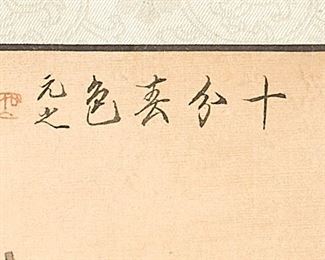 十分春色
元之